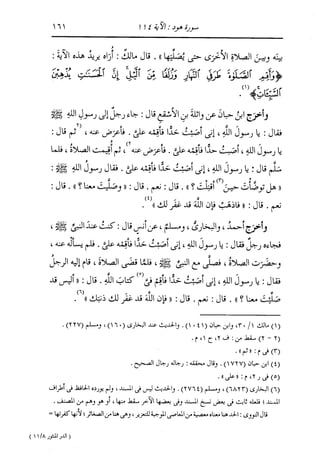 سورة هود : الآية ١١٤
١٦١
بينه وبين الصلاة الأخرى حتى يصليها» . قال مالك : أراه يريد هذه الآية :
﴿وأقم الصلوة طرفي النهار وزلفا من الليل إن الحسنات يذهبن
السيئات﴾(١) .
وأخرج ابن حبان عن واثلة بن الأسقع قال : جاء رجل إلى رسول الله ﷺ
فقال : يا رسول الله ، إني أصبت حدا فأقمه علي . فأعرض عنه ، (٢ثم قال :
يا رسول الله ، أصبت حدا فأقمه علي . فأعرض عنه٢) ، ثم أقيمت الصلاة ، فلما
سلم قال : يا رسول الله ، إني أصبت حدا فأقمه علي . فقال رسول الله :
«هل توضأت حين(٣) أقبلت ؟» . قال : نعم . قال : «وصليت معنا ؟» . قال :
نعم . قال : «فاذهب فإن الله قد غفر لك»(٤) .
وأخرج أحمد ، والبخاري ، ومسلم ، عن أنس قال : كنت عند النبي ﷺ ،
فجاءه رجل فقال : يا رسول الله ، إني أصبت حدا فأقمه علي . فلم يسأله عنه ،
وحضرت الصلاة ، فصلى مع النبي ﷺ ، فلما قضى الصلاة ، قام إليه الرجل
فقال : يا رسول الله ، إني أصبت حدا فأقم في(٥) كتاب الله . قال : «أليس قد
صليت معنا ؟» . قال : نعم . قال : «فإن الله قد غفر لك ذنبك»(٦) .
(١) مالك ١/ ٣٠، وابن حبان (١٠٤١) . والحديث عند البخاري (١٦٠) ، ومسلم (٢٢٧) .
(٢ - ٢) سقط من : ف ٢، ح ١، م .
(٣) في م : «ثم» .
(٤) ابن حبان (١٧٢٧) . وقال محققه : رجاله رجال الصحيح .
(٥) في ر ٢، م : «علي» .
(٦) البخاري (٦٨٢٣) ، ومسلم (٢٧٦٤) . والحديث ليس في المسند ، ولم يورده الحافظ في أطراف
المسند ؛ فلعله ثابت في بعض نسخ المسند وفي بعضها الآخر سقط منها ، أو هو وهم من المصنف .
قال النووي : الحد هنا معناه معصية من المعاصي الموجبة للتعزير ، وهي هنا من الصغائر ؛ لأنها كفرتها =
( الدر المنثور ١١/٨ )